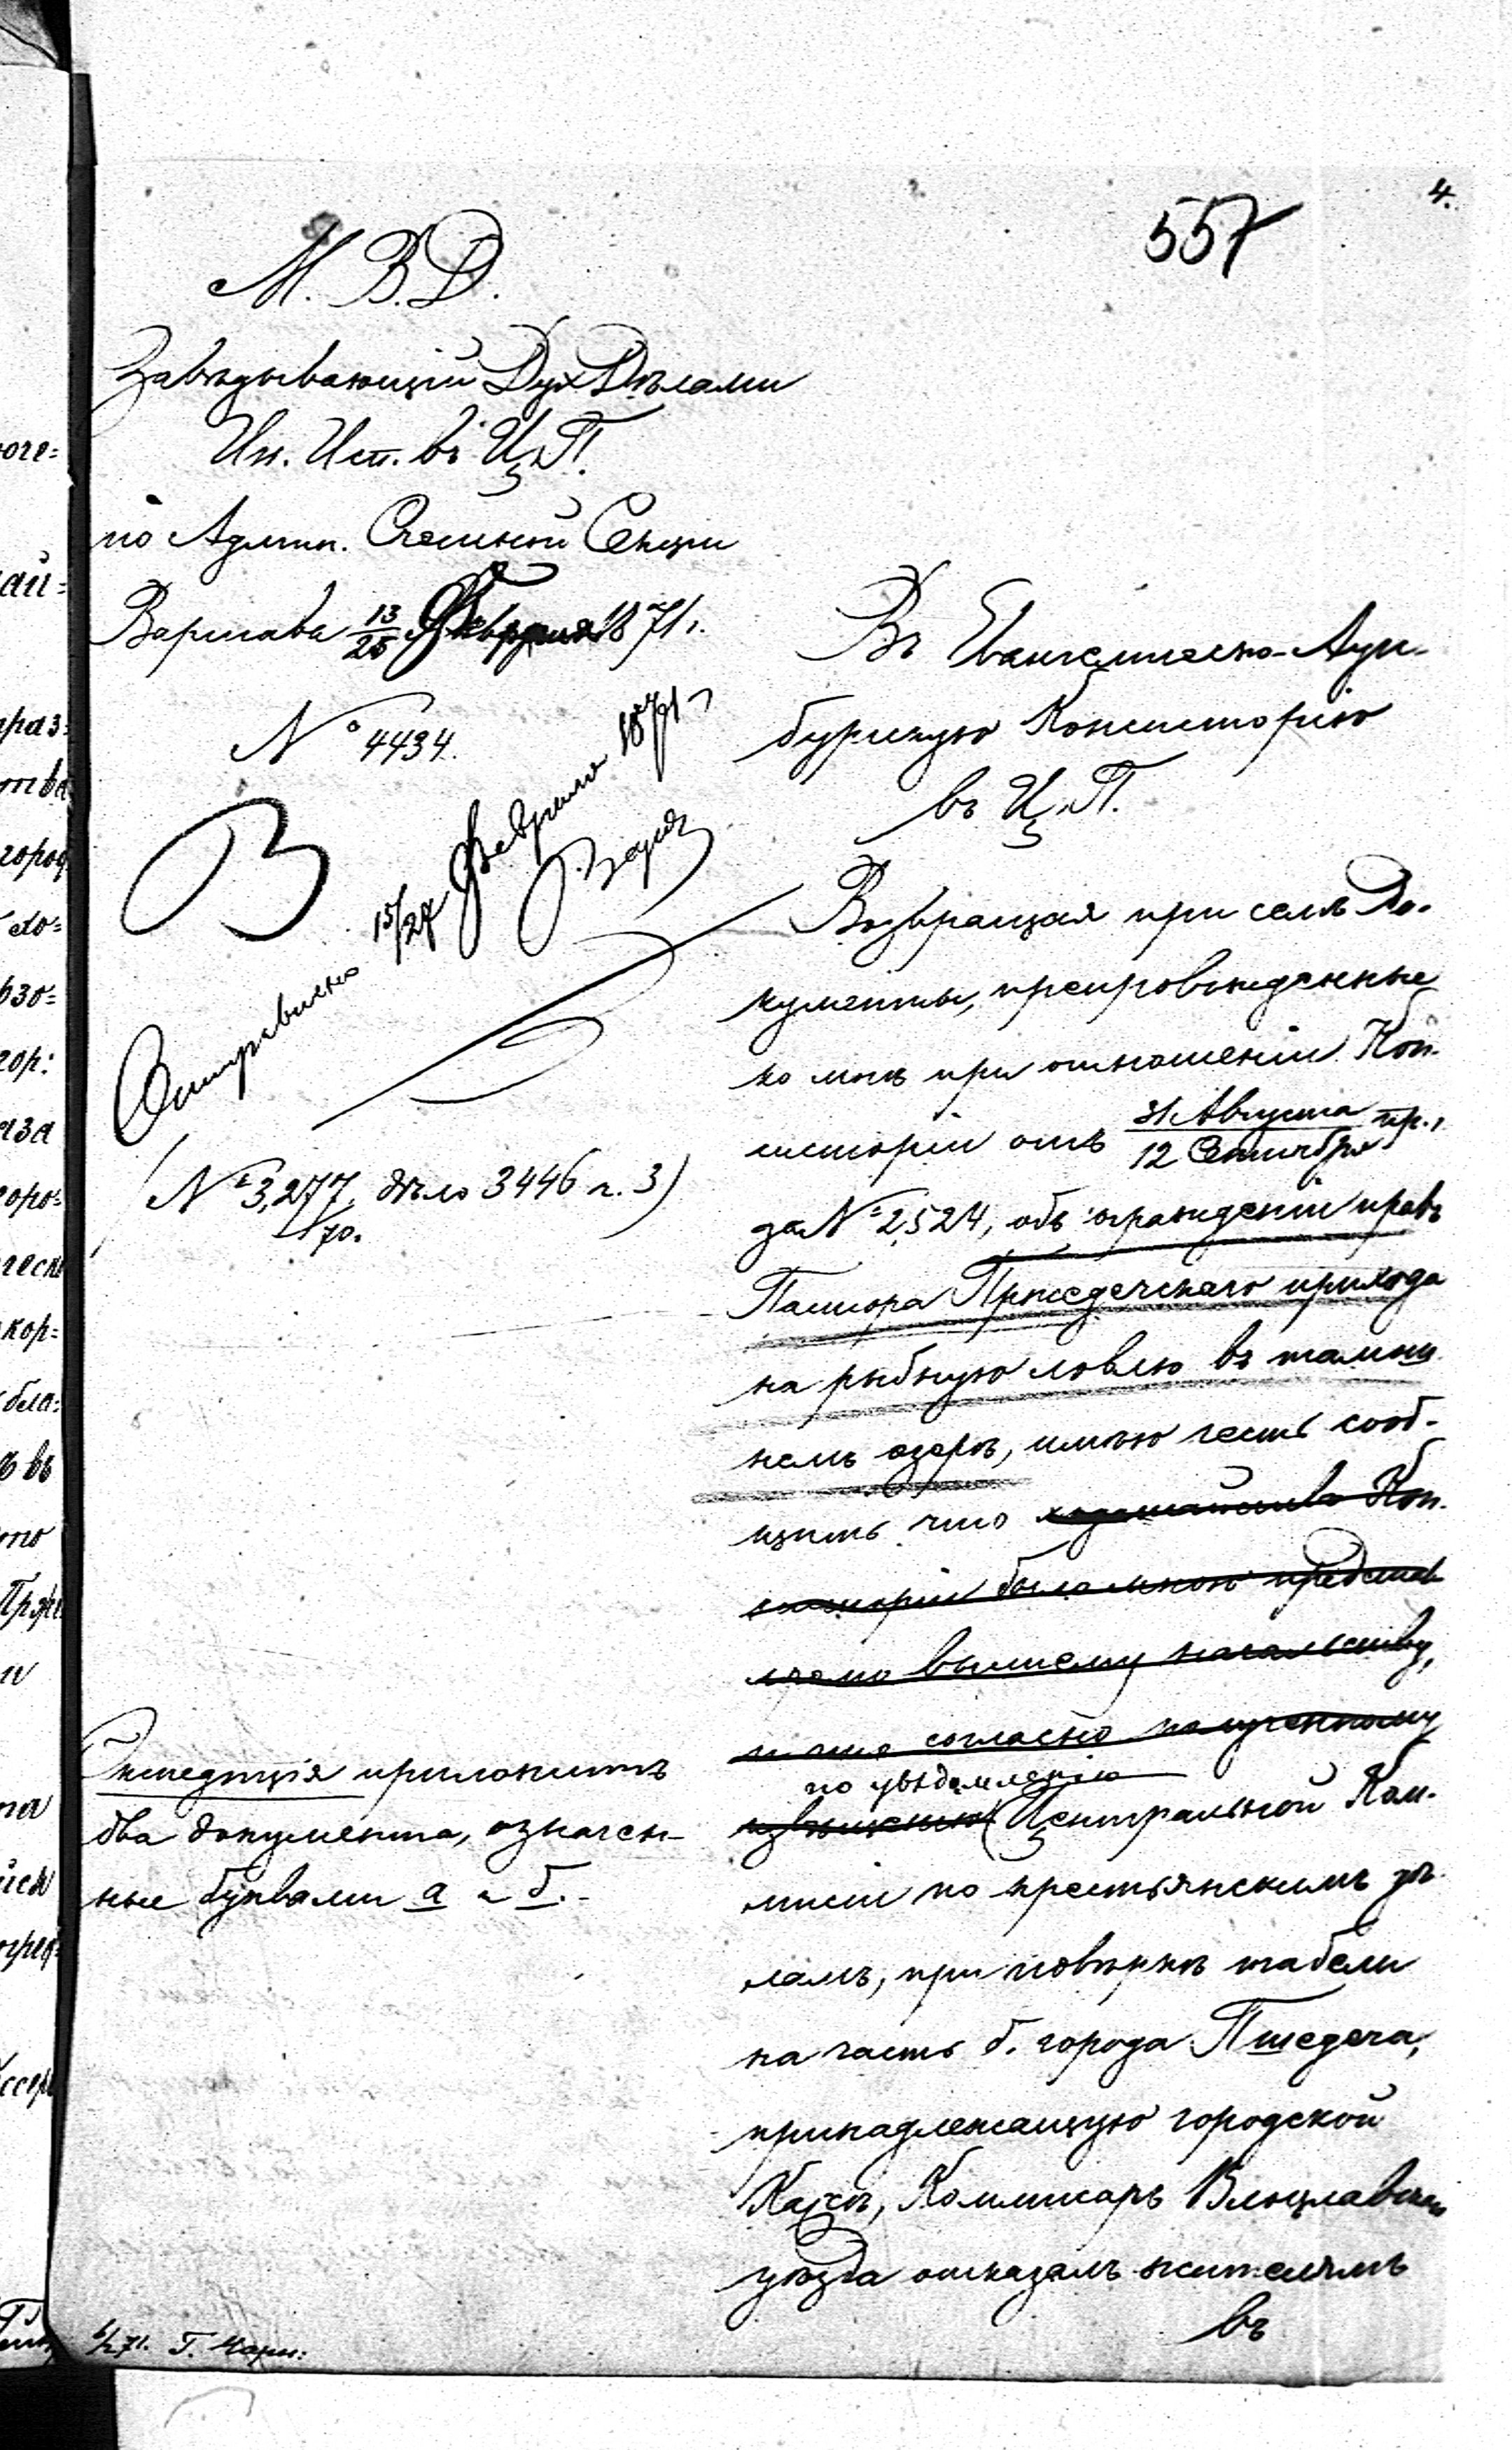 4.
557
М. В. Д.
Завѣдывающій Дух. Дѣлами
Ин. Исп. въ Ц. П.
по Админ. Счетной Секціи
Варшава 13/25 Февраля 1871 г.
№ 4434.
Отправлено 15/27 Февраля 1871 г.
(№ 3,277/70. дѣло 3446 л. 3)
Въ Евангелическо-Аугс-
бургскую Консисторію
въ Ц. П.
Возвращая при семъ до-
кументы, препровожденные
ко мнѣ при отношеніи Кон-
систоріи отъ 31 Августа/12 Сентября пр. г.
за № 2,524, объ огражденіи правъ
Пастора Пршедечскаго прихода
на рыбную ловлю въ тамош-
немъ озерѣ, имѣю честь сооб-
щить что ходатайство Кон-
систоріи было мною представ
лено высшему начальству,
и что согласно полученному
по увѣдомленію
извѣщенію Центральной Ком-
мисіи по крестьянскимъ дѣ-
ламъ, при повѣркѣ табели
на часть б. города Пшедеча,
принадлежащую городской
Кассѣ, Коммисаръ Влоцлавскаго
уѣзда отказалъ жителямъ
въ
Экспедиція приложитъ
два документа, означен-
ные буквами а и б.
6/2 71. Г. Карн: